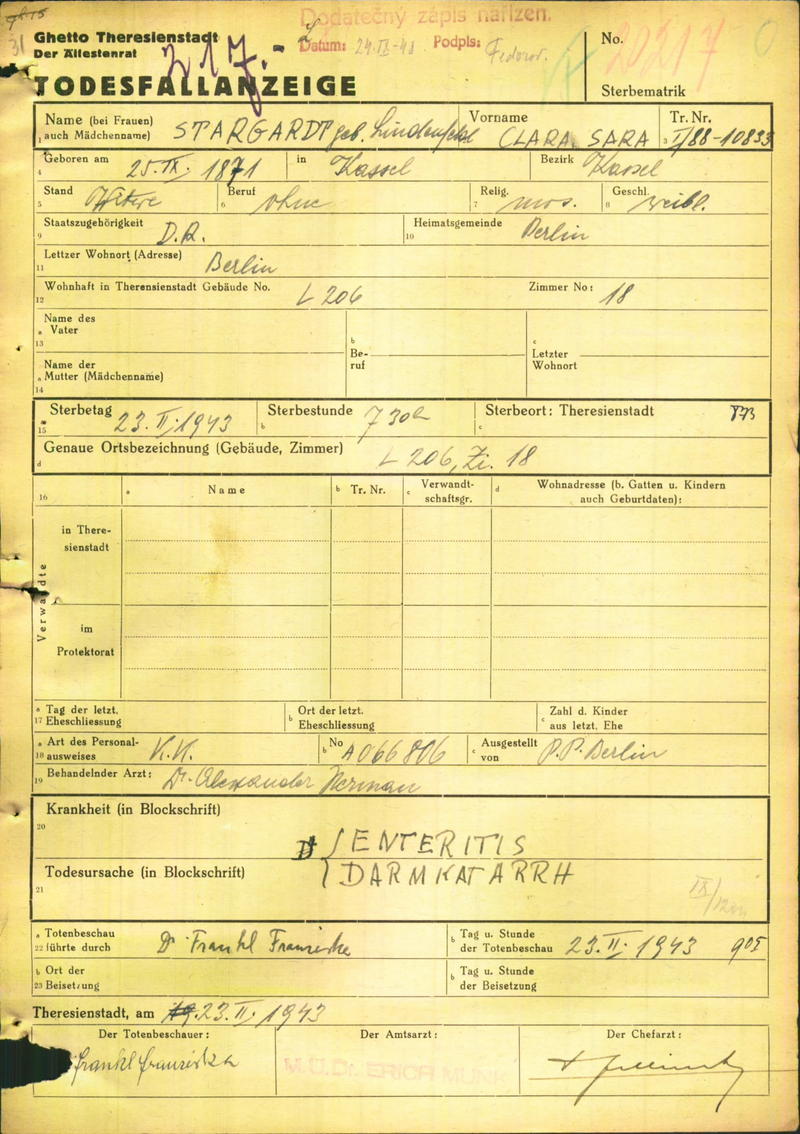 31
Ghetto Theresienstadt
Der Ältestenrat
217.-
Dodatečný zápis nařízen.
Datum: 24.IX-48 Podpis: Fedorov.
No. 20217
TODESFALLANZEIGE
Sterbematrik
Name (bei Frauen) auch Mädchenname) STARGARDT geb. Lindenfeld Vorname CLARA SARA Tr. Nr. I/88-10833
Geboren am 25.IX.1871 in Kassel Bezirk Kassel
Stand Witwe Beruf ohne Relig. mos. Geschl. weibl.
Staatszugehörigkeit D.R. Heimatsgemeinde Berlin
Lettzer Wohnort (Adresse) Berlin
Wohnhaft in Therensienstadt Gebäude No. L 206 Zimmer No: 18
Name des Vater
Be-ruf
Letzter Wohnort
Name der Mutter (Mädchenname)
Sterbetag 23.II.1943 Sterbestunde 7 30 h Sterbeort: Theresienstadt
Genaue Ortsbezeichnung (Gebäude, Zimmer) L 206, Zi. 18
Name Tr. Nr. Verwandt-schaftsgr. Wohnadresse (b. Gatten u. Kindern auch Geburtdaten):
Verwandte
in There-sienstadt
im Protektorat
Tag der letzt. Eheschliessung Ort der letzt. Eheschliessung Zahl d. Kinder aus letzt. Ehe
Art des Personal-ausweises K.K. No A066806 Ausgestellt von P.P. Berlin
Behandelnder Arzt: Dr. Alexander Herman
Krankheit (in Blockschrift)
ENTERITIS
Todesursache (in Blockschrift) DARMKATARRH
Totenbeschau führte durch Dr Frankl Franziska Tag u. Stunde der Totenbeschau 23.II.1943 9 05
Ort der Beisetzung Tag u. Stunde der Beisetzung
Theresienstadt, am 23.II.1943
Der Totenbeschauer: Der Amtsarzt: Der Chefarzt:
Frankl Franziska M.U.Dr. ERICH MUNK